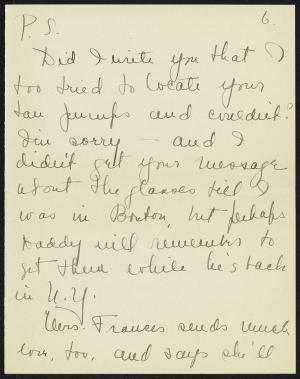 6.
P.S.
Did I write you that I
too tried to locate your
tan pumps and couldn't?
I'm sorry — and I
didn't get your message
about the glasses till I
was in Boston, but perhaps
Daddy will remember to
get them while he's back
in N.Y.
Mrs. Frances sends much
love, too, and says she'll